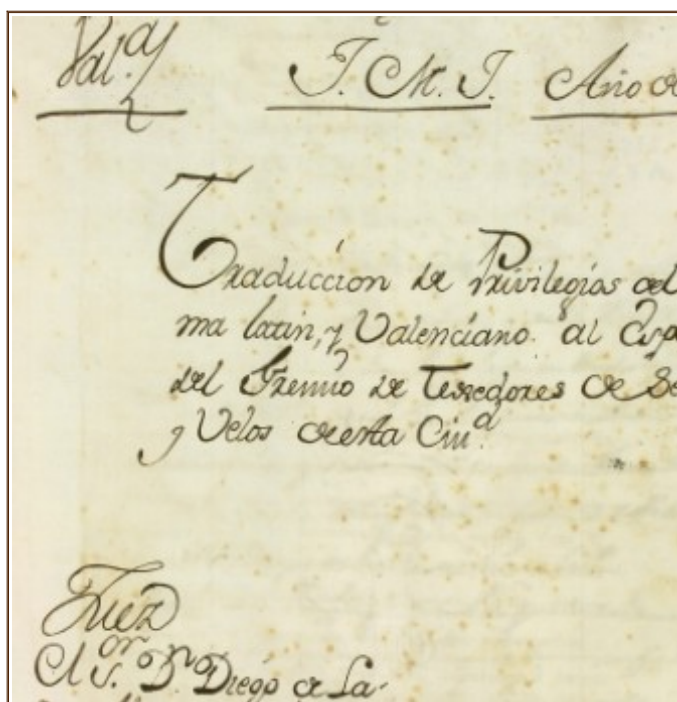 Val.ª J. M. J. Año de
Traduccion de Privilegios del
ma latin, y Valenciano al Esp
del Gremio de Texedores de Se
y Velos de esta Ciu.ᵈ
Juez
El S.ᵒʳ D.ⁿ Diego de La-